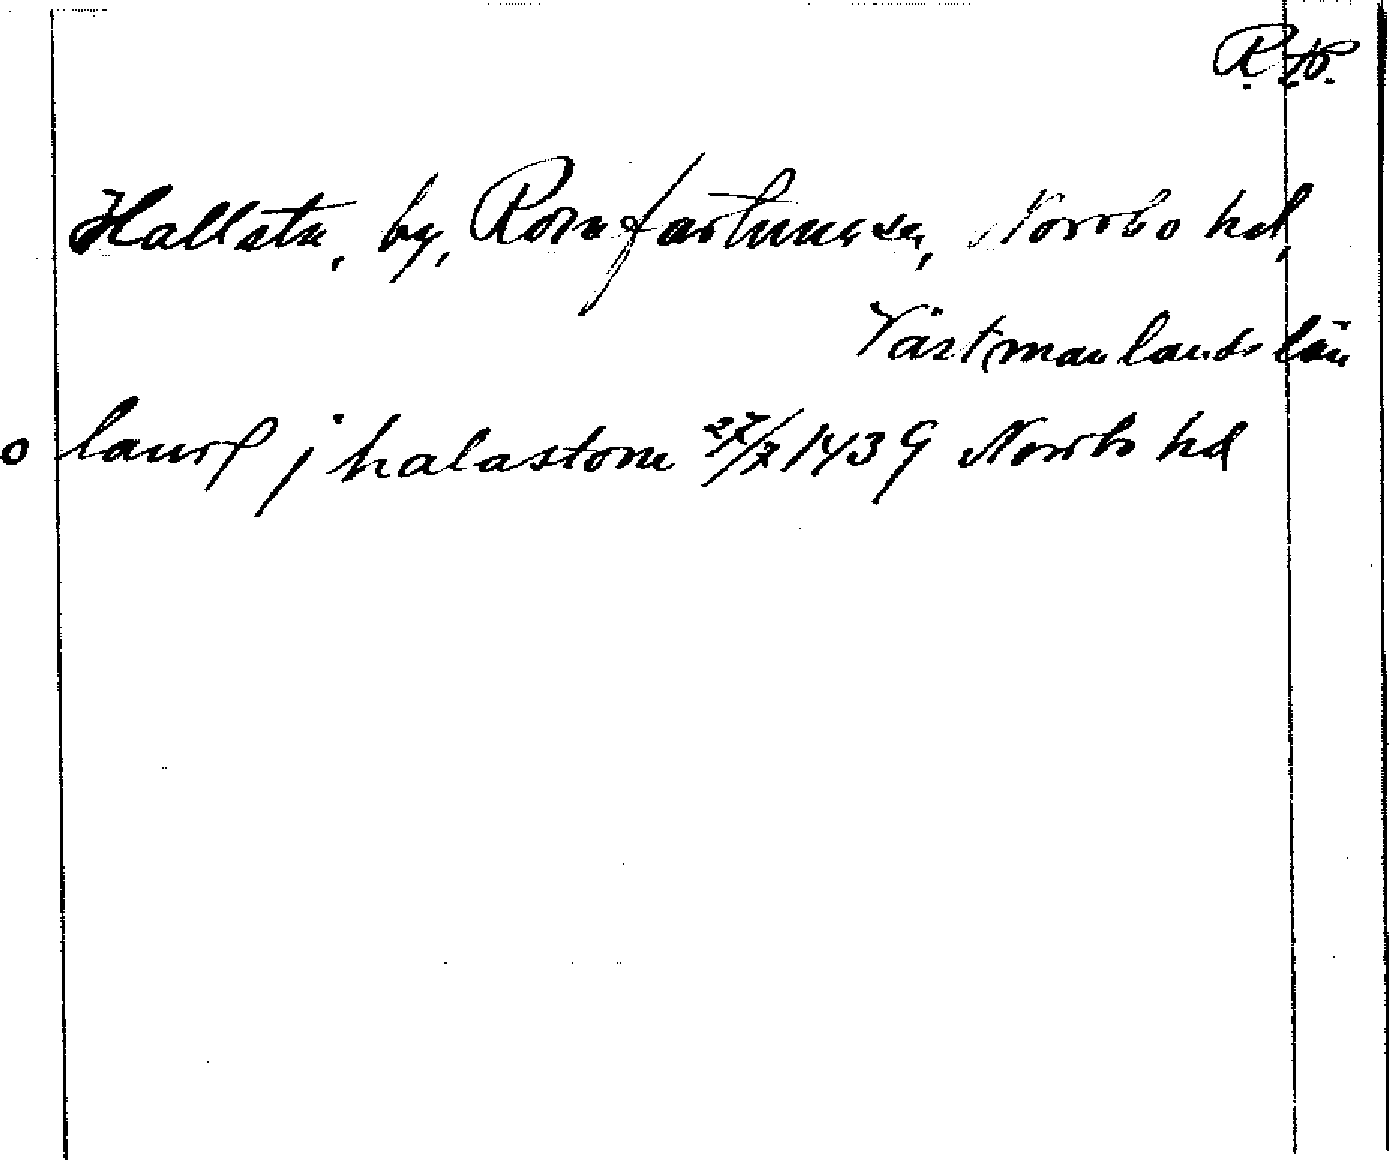 R. Ap.
Hallsta, by, Romfartuna sn, Norrbo hd,
Västmanlands län
o laurſ j halastom 27/7 1439 Norrbo hd